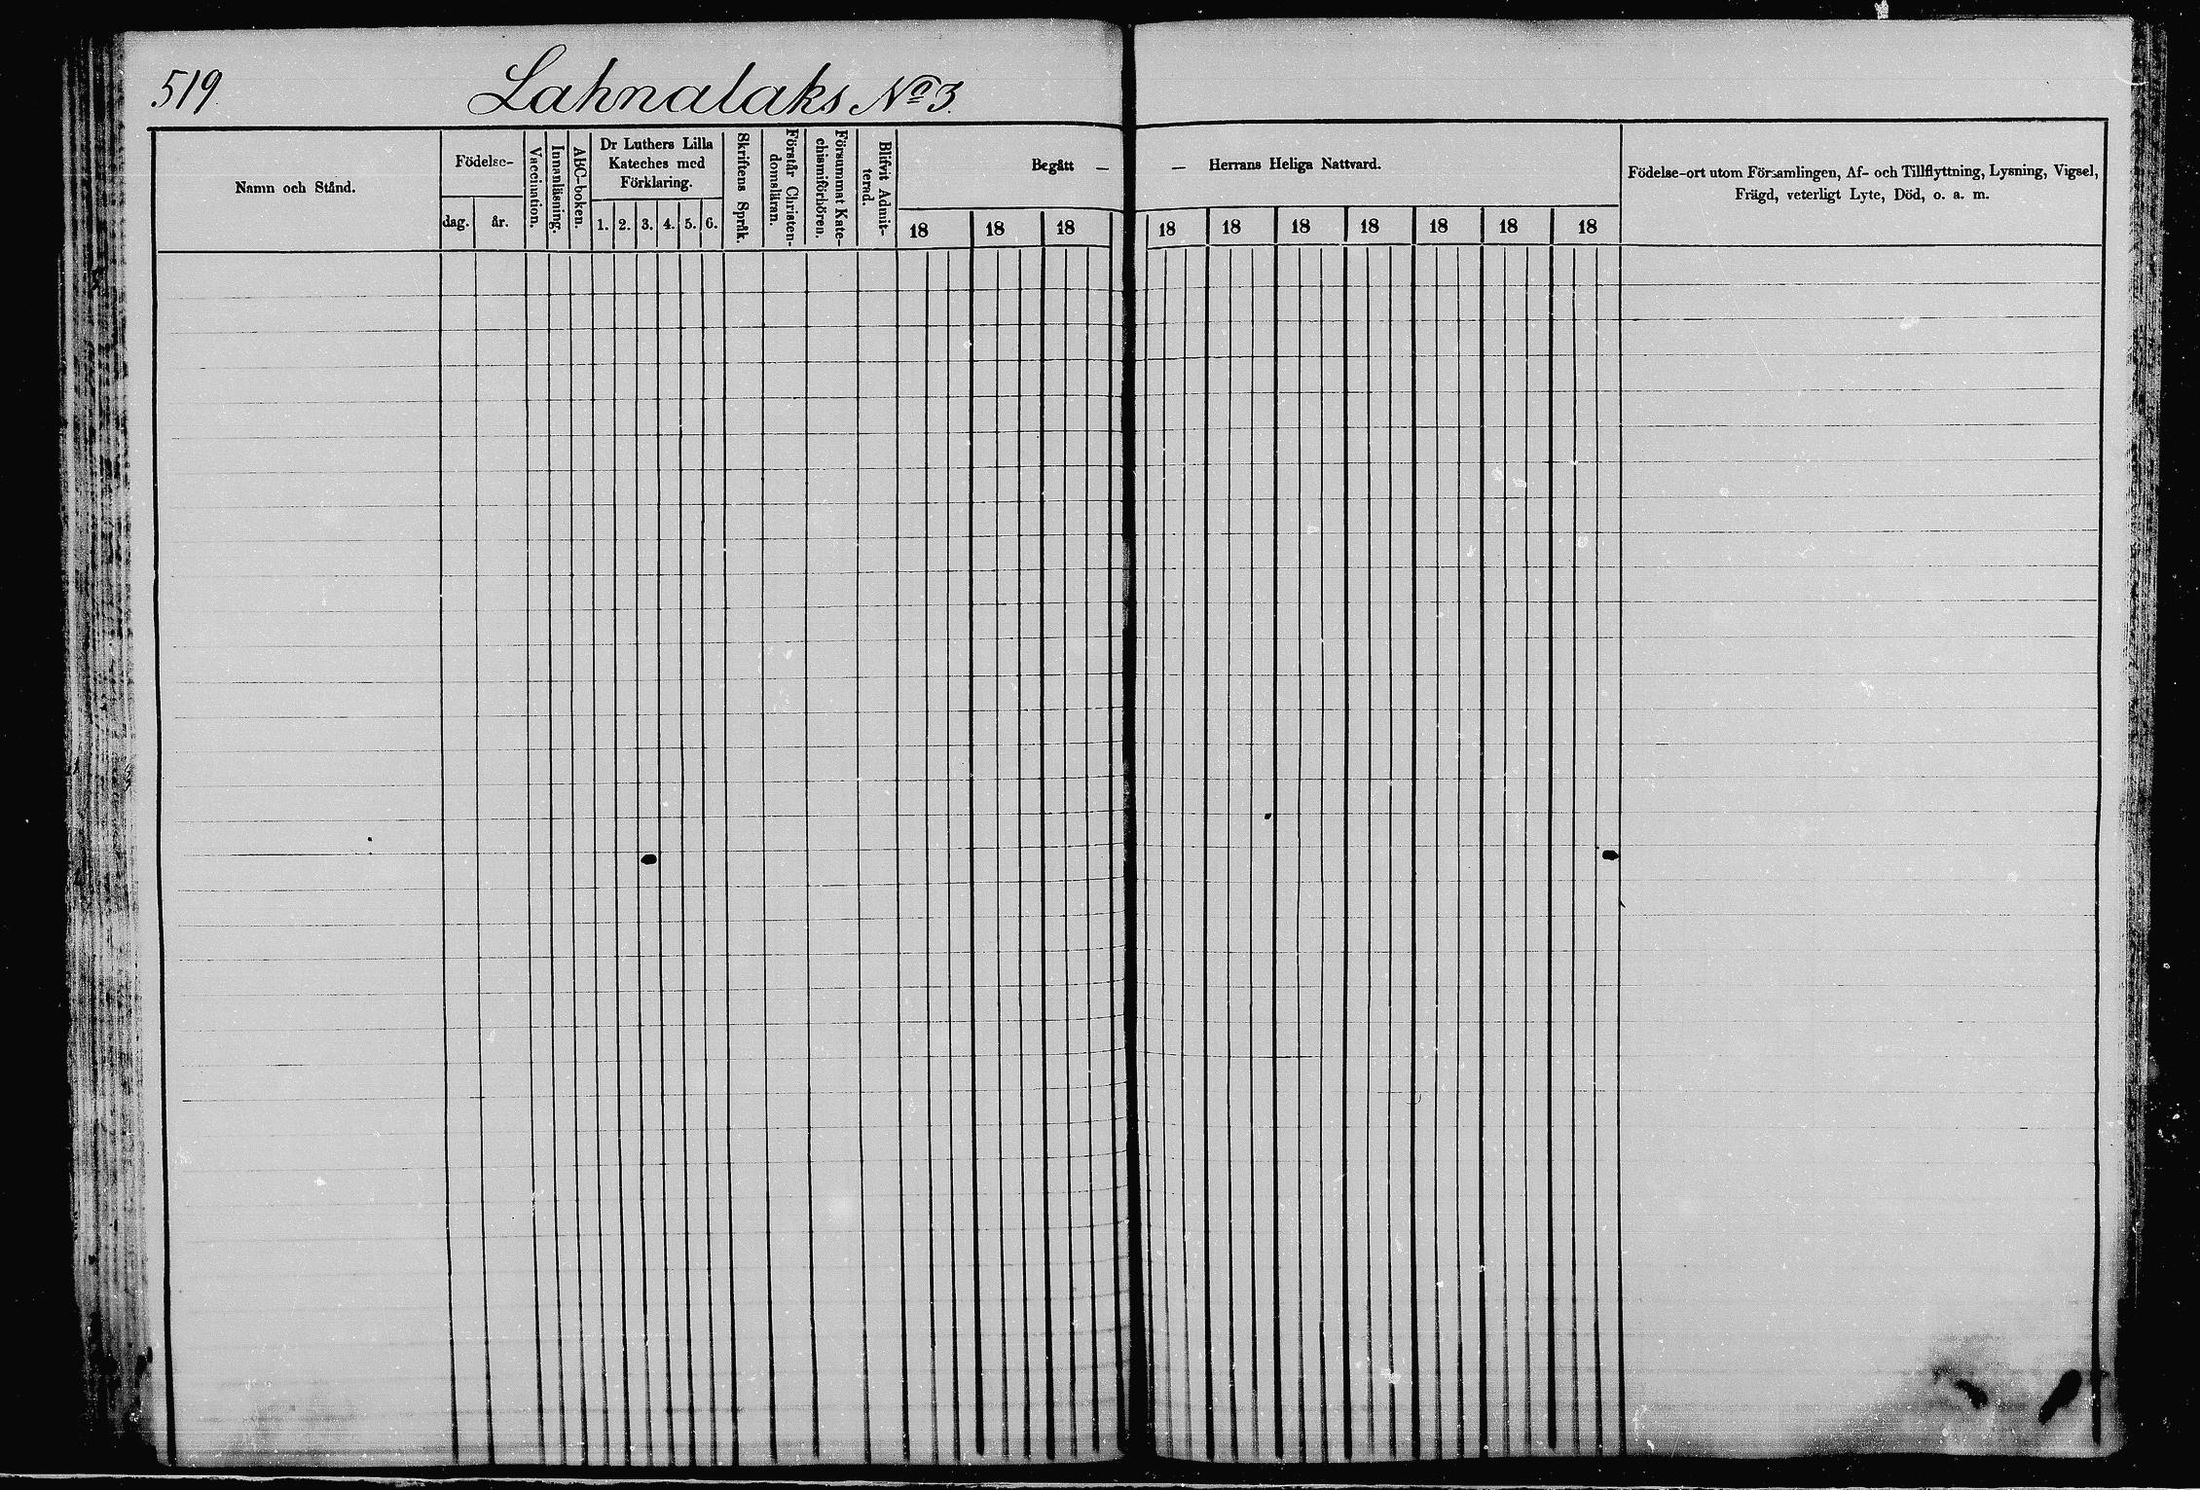 519.
Lahnalaks No 3.
Namn och Stånd.
Födelse-
dag.
år.
Vaccination.
Innanläsning.
ABC-boken.
Dr Luthers Lilla
Kateches med
Förklaring.
1. 2. 3. 4. 5. 6.
Skriftens Språk.
Förstår Christen-
domsläran.
Försummat Kate-
chismiförhören.
Blifvit Admit-
terad.
Begått —
— Herrans Heliga Nattvard.
18 18 18 18 18 18 18 18 18 18
Födelse-ort utom Församlingen, Af- och Tillflyttning, Lysning, Vigsel,
Frägd, veterligt Lyte, Död, o. a. m.